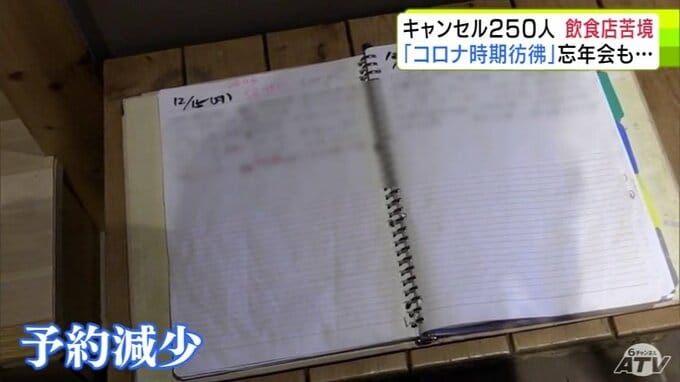 キャンセル250人 飲食店苦境
「コロナ時期彷彿」忘年会も…
12/15(月)
予約減少
6チャンネル
ATV